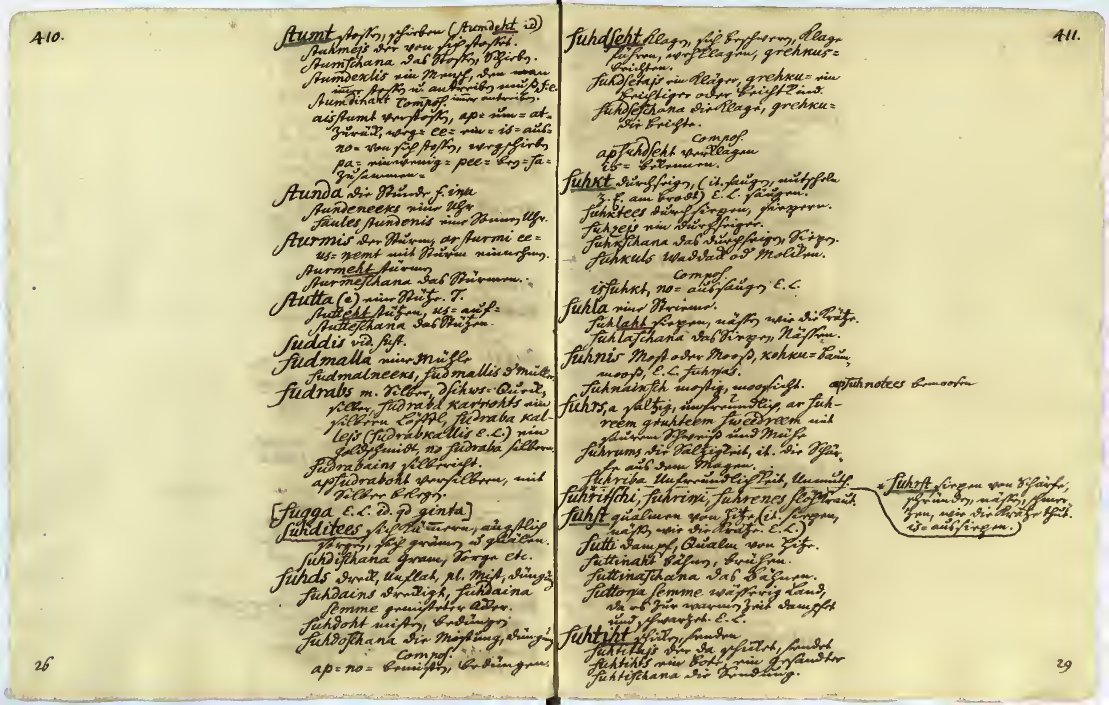 410.
stumt stossen, schieben (stumdeht id)
stuhmejs der von sich stosset.
stumschana das Stossen, Schieben.
stumdeklis ein Mensch, den man
immer stossen u. antreiben muss
stumdinaht Compos. immer antreiben.
aisstumt verstossen, ap= um= at=
zurück, weg= ee= ein= is= aus=
no= von sich stossen, wegschieben
pa= ein wenig= pee= bey= sa=
zusammen=
stunda die Stunde
stundeneeks eine Uhr
saules stundenis eine Sonnen Uhr.
sturmis der Sturm, ar sturmi ee=
us= nemt mit Sturm einnehmen.
sturmeht stürmen
sturmeschana das Stürmen.
stutta (e) eine Stütze. T.
stutteht stützen, us= auf=
stutteschana das Stützen.
suddis vid. sust.
sudmalla eine Mühle
sudmalneeks, sudmallis d Müller
sudrabs m. Silber, dsihws= Queck,
silber, sudraba karrohts ein
silbern Löffel, sudraba kal=
lejs (sudrabkallis E.L.) ein
Goldschmidt, no sudraba silbern.
sudrabains silbericht.
apsudraboht versilbern, mit
Silber belegen.
[sugga E.L. ginta]
suhditees sich kümmern, ängstlich
sorgen, sich grämen u quälen.
suhdischana Gram, Sorge etc.
suhds Dreck, Unflat, pl. Mist, Düngung
suhdains dreckigt, suhdaina
semme gemisteter Acker.
suhdoht misten, bedüngen
suhdoschana die Mistung, Düngung
Compos.
ap= no= bemisten, bedüngen.
26
411.
suhdseht klagen, sich beschweren, Klage
führen, verklagen, grehkus=
beichten.
suhdsetajs ein Kläger, grehku= ein
Beichtiger oder Beichtkind.
suhdseschana die Klage, grehku=
die Beichte.
Compos.
apsuhdseht verklagen
is= bekennen.
suhkt durchseigen, (it. saugen, nutscheln
z.E. am Brodt) E.L. saugen.
suhktees durchsiepen, siepern.
suhzejs ein Durchseiger.
suhkschana das Durchseigen, Siepen.
suhkuls Waddack od Molken.
Compos.
issuhkt, no= aussaugen E.L.
suhla eine Strieme.
suhlaht siepen, nässen wie die Krätze.
suhlaschana das Siepen, Nässen.
suhnis Most oder Moos, kohku= Baum,
moos, E.L. suhnas.
suhnainsch mostig, moosicht. apsuhnotees bemoosen
suhrs, a saltzig, unfreundlich, ar suh=
reem gruhteem sweedreem mit
saurem Schweiss und Mühe
suhrums die Saltzigkeit, it. die Schär,
fe aus dem Magen.
suhriba Unfreundlichkeit, Unmuth.
suhritschi, suhrini, suhrenes Flohkraut.
* suhrst siepen von Schärfe,
schründen, nässen, schmer,
tzen, wie die Krätze thut.
is= aussiepen.)
suhst qualmen von Hitze (it. siepen,
nässen wie die Krätze. E.L.)
sutti Dampf, Qualm von Hitze.
suttinaht bähen, brühen.
suttinaschana das Bähnen.
suttona semme wässerig Land,
da es zur warmen Zeit dampfet
und schwartzet. E.L.
suhtiht schicken, senden
suhtitajs der da schicket, sendet
suhtihts ein Bote, ein Gesandter
suhtischana die Sendung.
29